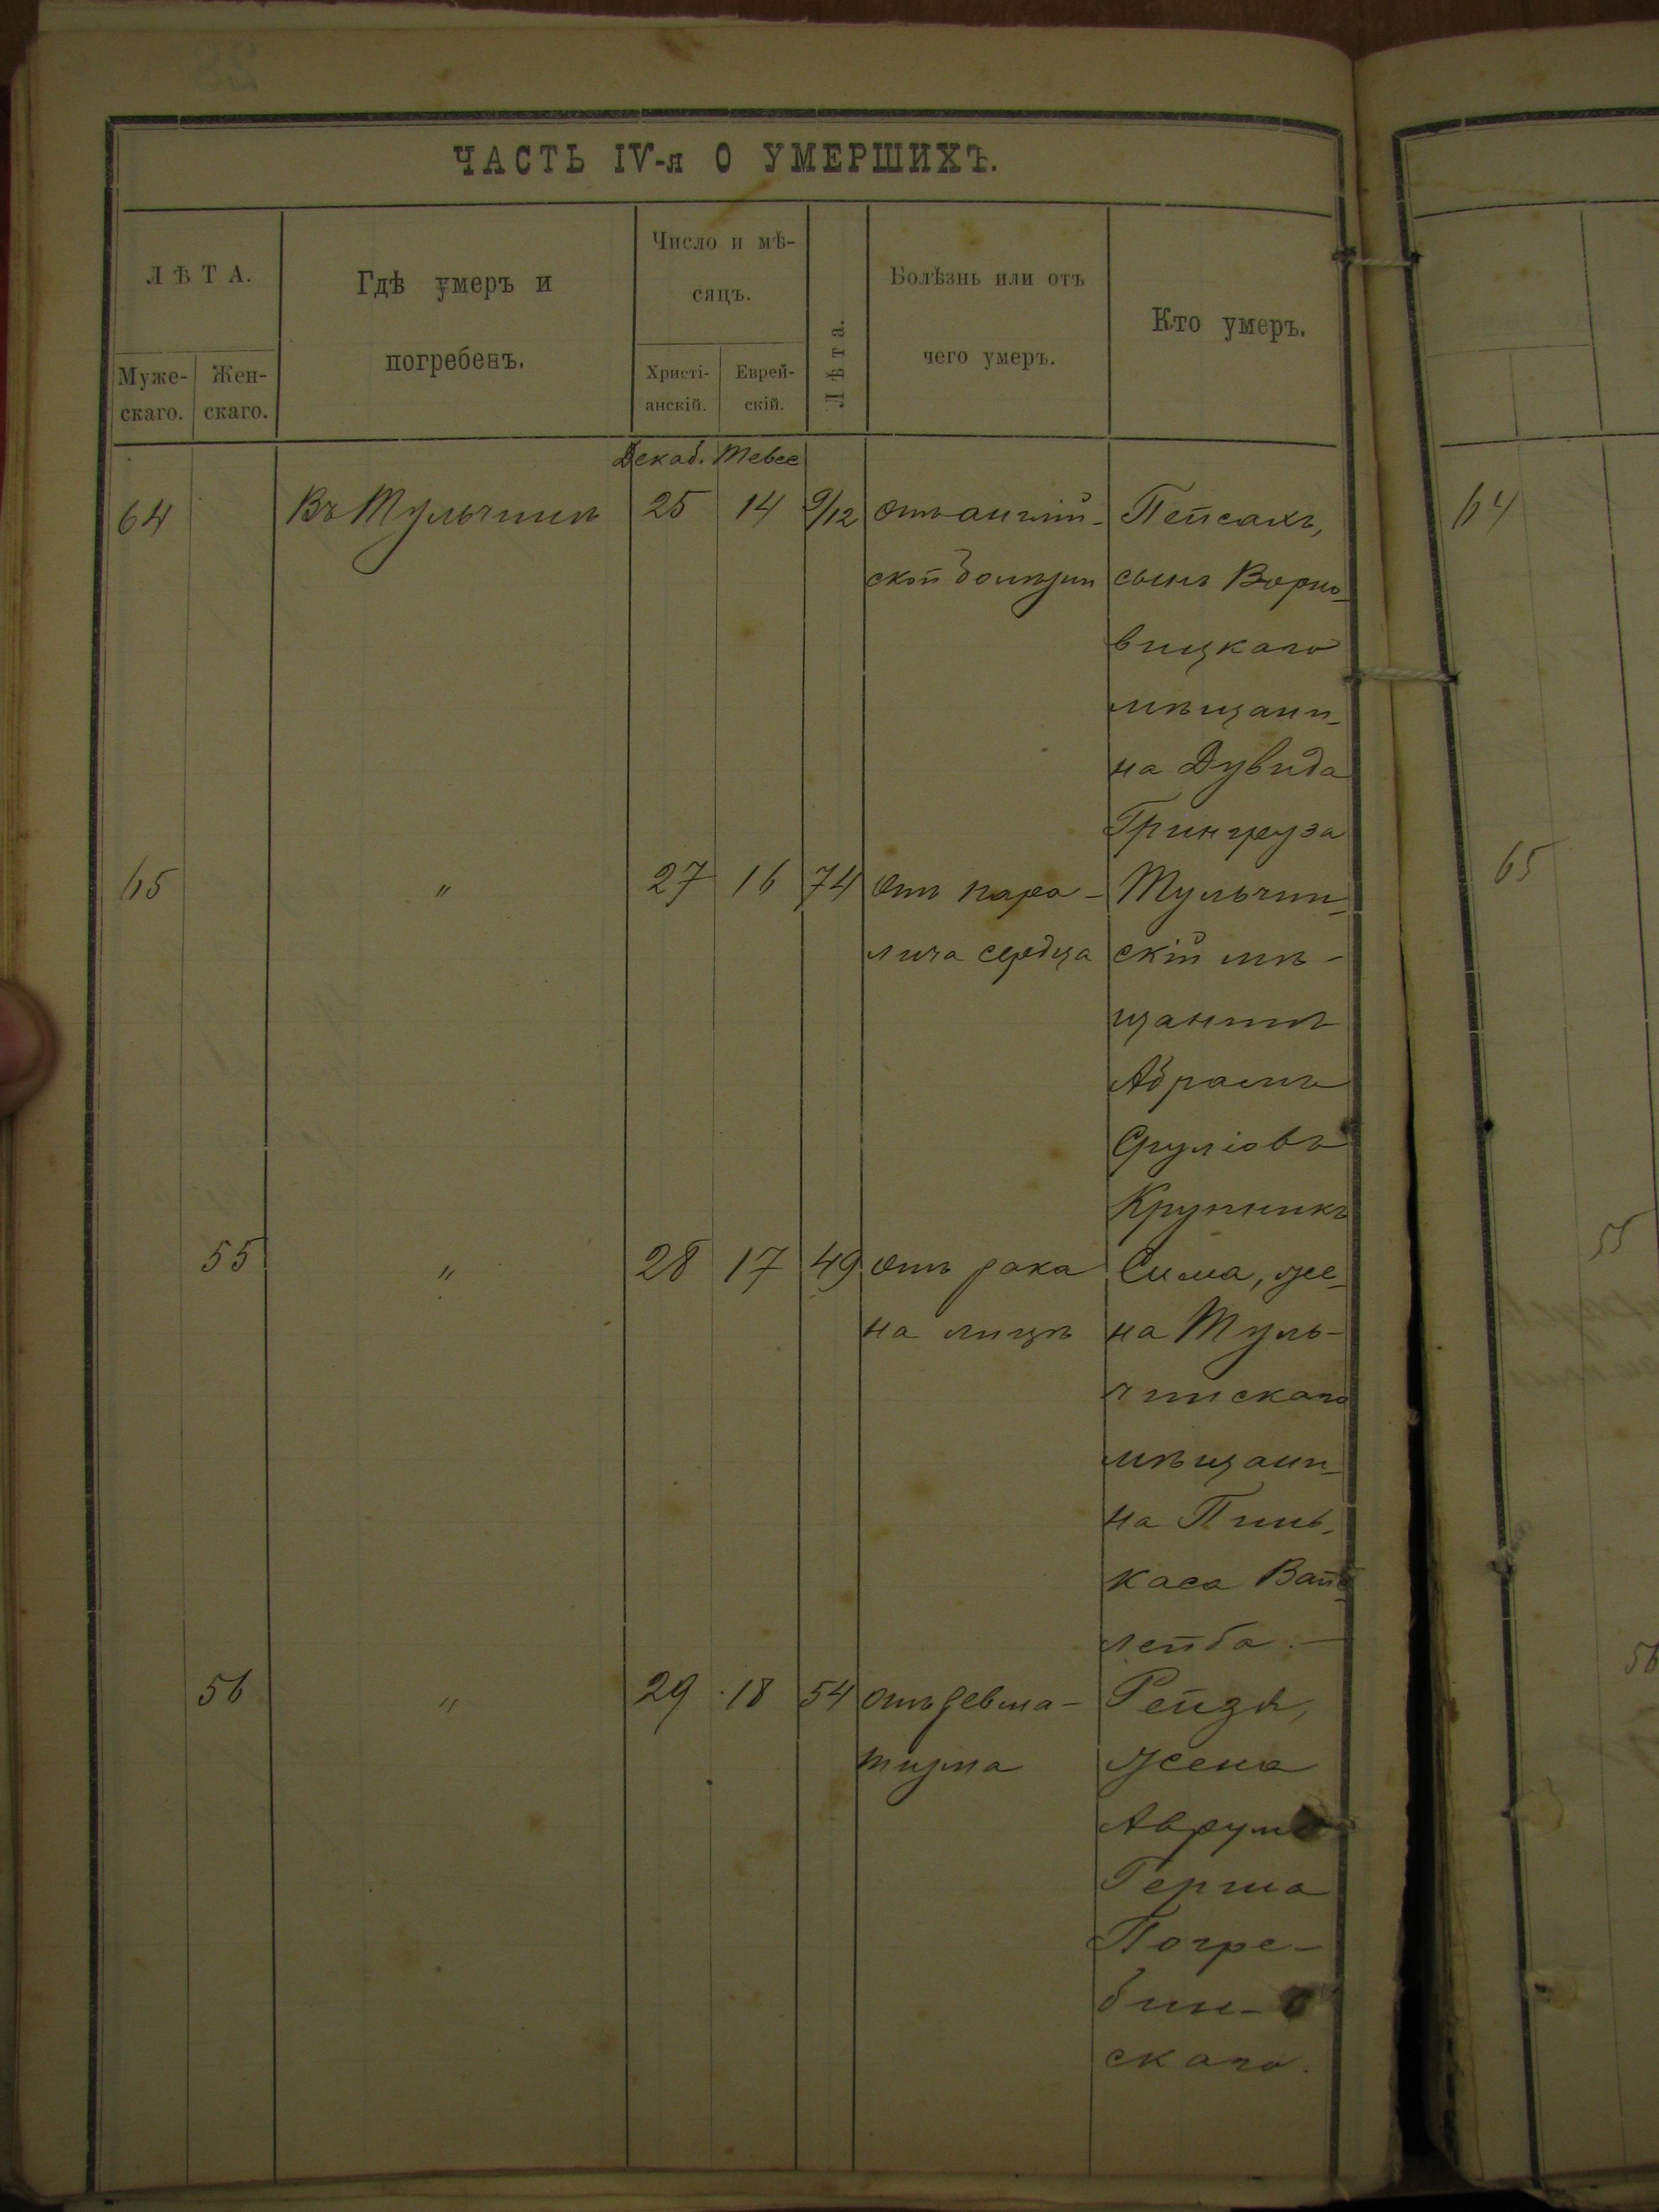 ЧАСТЬ IV-я О УМЕРШИХЪ.
ЛѢТА.
Муже-
скаго.
Жен-
скаго.
Гдѣ умеръ и
погребенъ.
Число и мѣ-
сяцъ.
Христі-
анскій.
Еврей-
скій.
Лѣта.
Болѣзнь или отъ
чего умеръ.
Кто умеръ.
Декаб. Тевес
64 Въ Тульчинѣ 25 14 9/12 отъ англій- Пейсахъ,
ской болѣзни сынъ Ворно-
вицкаго
мѣщани-
на Дувида
Грингруза
65 " 27 16 74 отъ пара- Тульчин-
лича сердца скій мѣ-
щанинъ
Абрамъ
Сруліовъ
Крупникъ
55 " 28 17 49 отъ рака Сима, же-
на лицѣ на Туль-
чинскаго
мѣщани-
на Пинь-
каса Вайс-
лейба.—
56 " 29 18 54 отъ ревма- Рейзя,
тизма жена
Аврума
Герша
Погре-
бин-
скаго.
64
65
55
56